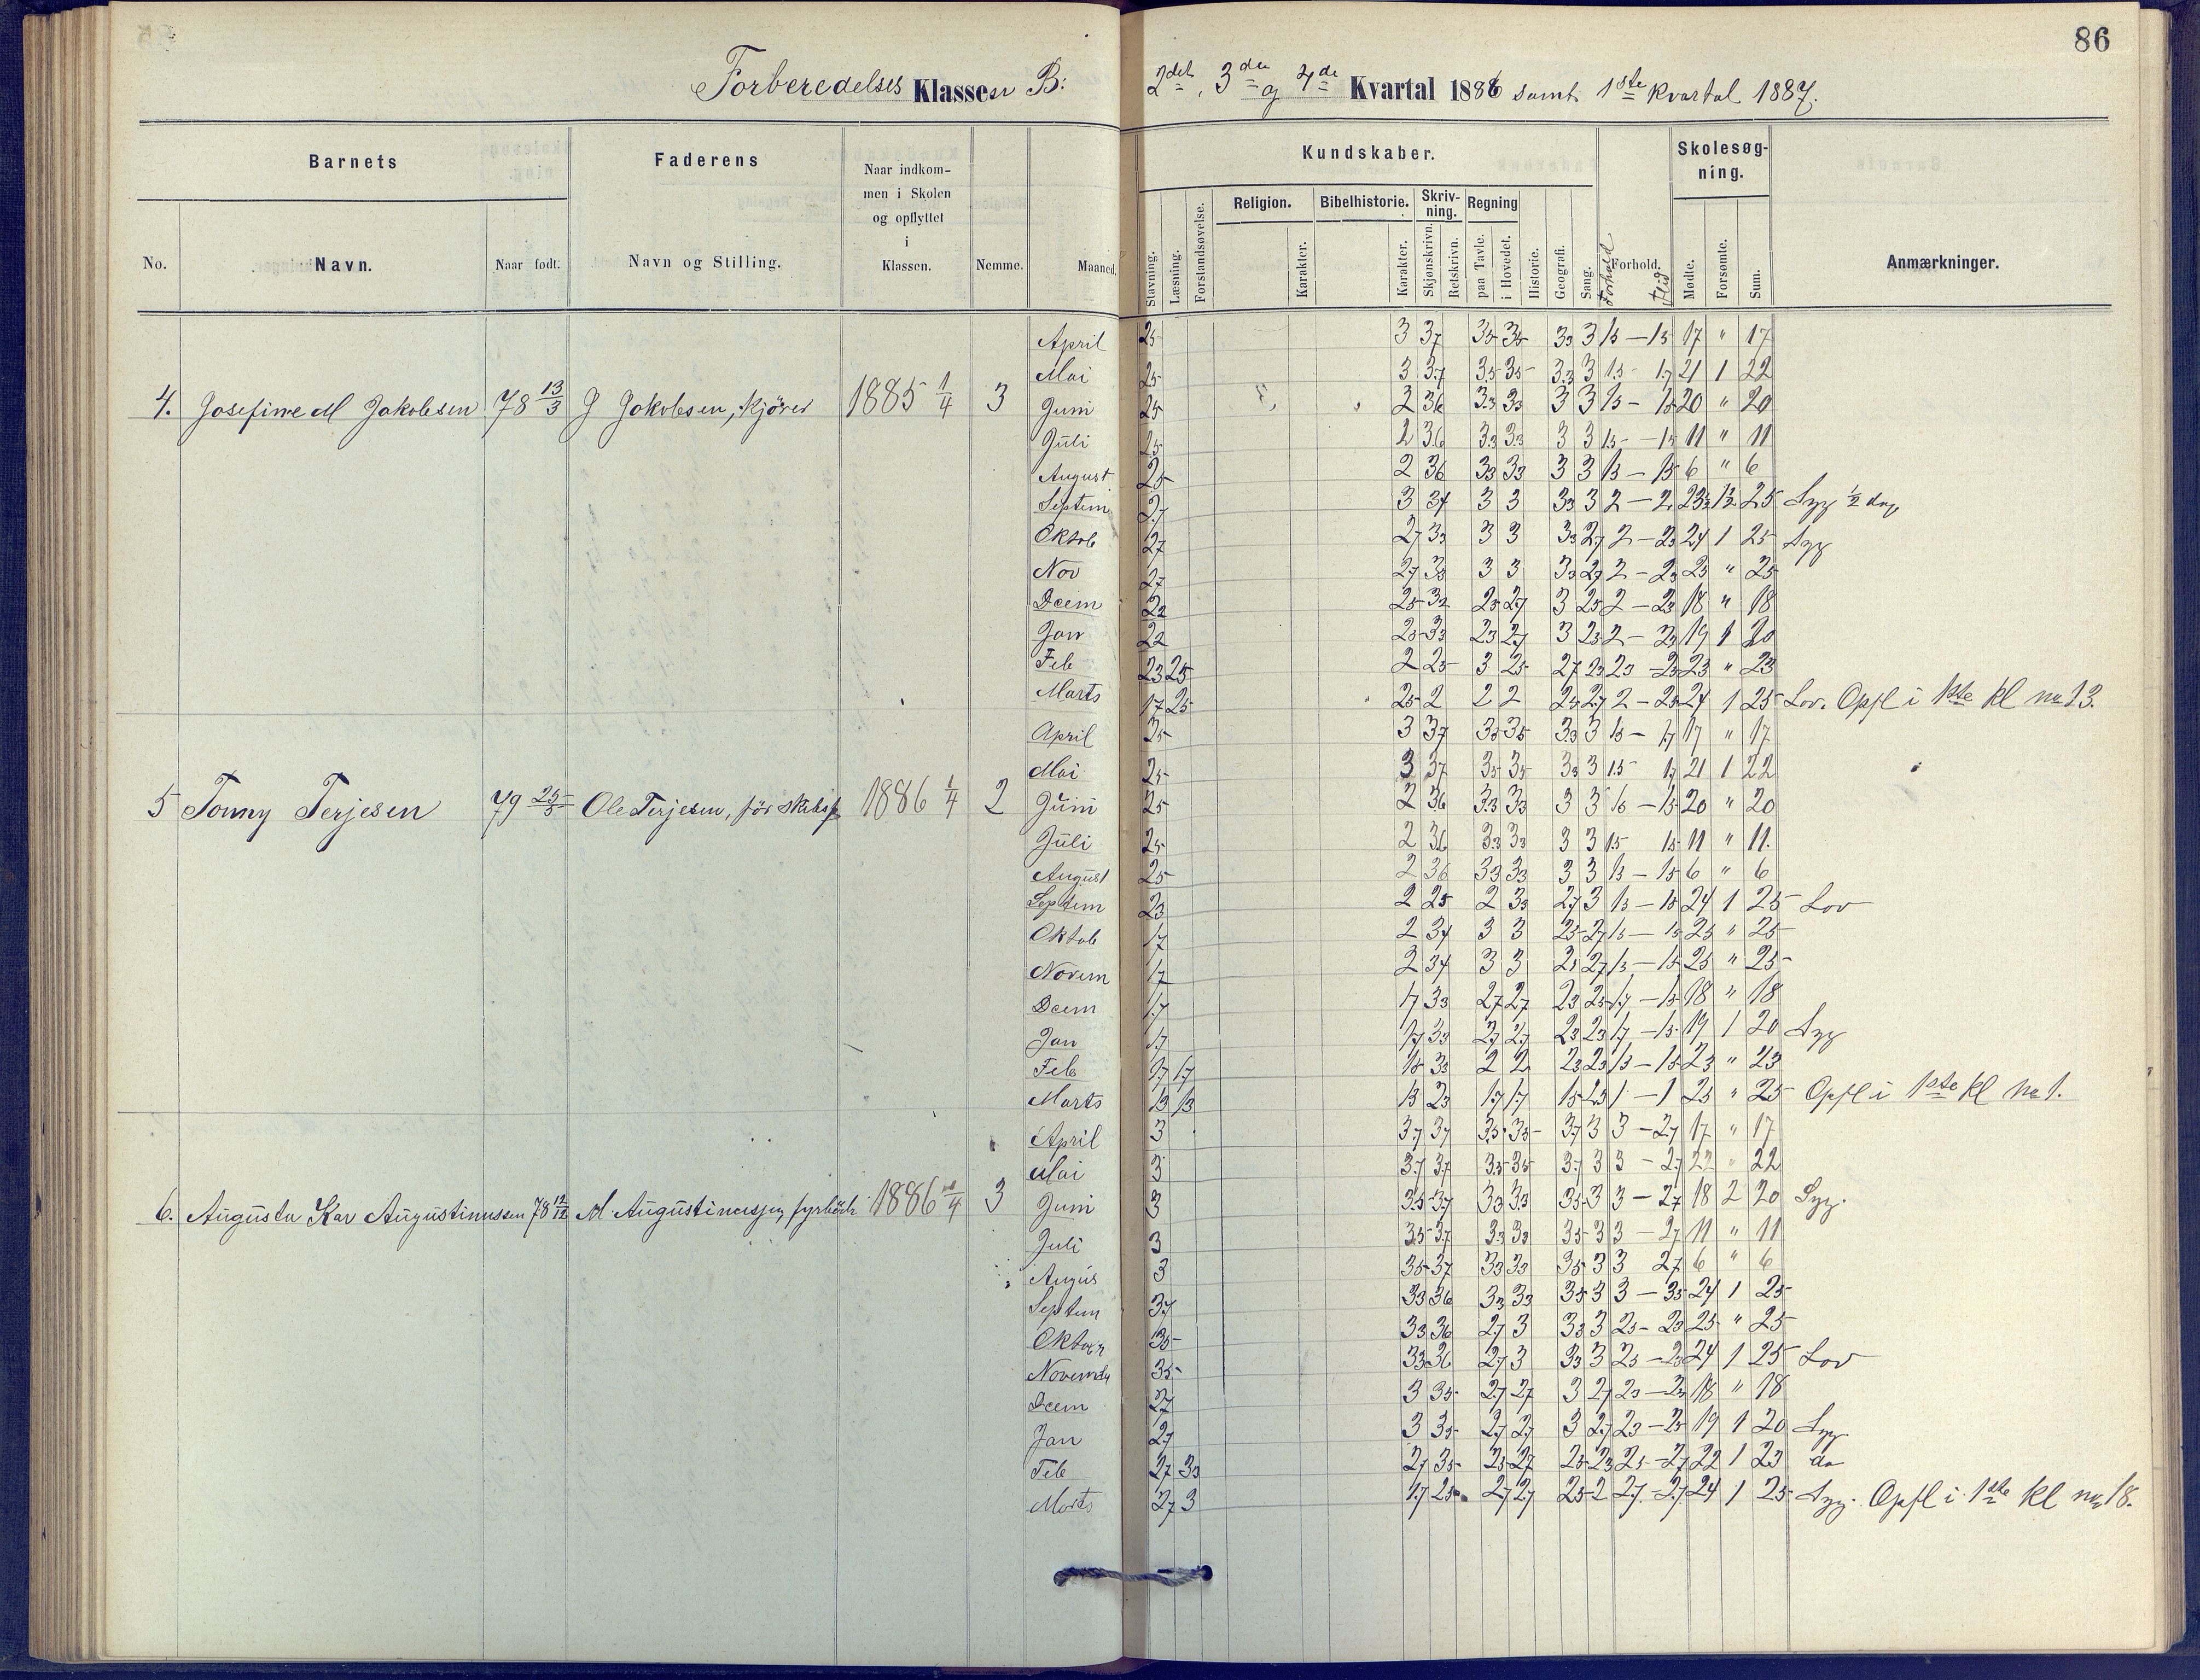 86
Forberedelses Klassen B:
2det, 3die og 4de Kvartal 1886 samt 1ste Kvartal 1887.
Barnets
Faderens
Naar indkom-
men i Skolen
og opflyttet
i
Klassen.
No.
Navn.
Naar født.
Navn og Stilling.
Nemme.
Maaned.
Kundskaber.
Skolesøg-
ning.
Religion.
Bibelhistorie.
Skriv-
ning.
Regning
Stavning.
Læsning.
Forstandsøvelse.
Karakter.
Karakter.
Skjønskrivn.
Retskrivn.
paa Tavle.
i Hovedet.
Historie.
Geografi.
Sang.
Forhold.
Forhold
Flid
Mødte.
Forsømte.
Sum.
Anmærkninger.
4. Josefine M Jakobsen 78 13/3 J Jakobsen, Kjører 1885 1/4 3
April 25 3 37 35 35 33 3 15 – 15 17 " 17
Mai 25 3 3.7 3.5 35 3.3 3 1.5 - 1.7 21 1 22
Juni 25 2 36 3.3 33 3 3 15 – 15 20 " 20
Juli 25 2 36 3.3 3.3 3 3 15 – 15 11 " 11
August 25 2 36 33 33 3 3 15 – 15 6 " 6
Septem 27 3 34 3 3 33 3 2 – 2 23½ 1½ 25 Syg ½ dag
Oktob 27 27 33 3 3 33 27 2 – 23 24 1 25 Syg
Nov 27 27 33 3 3 33 27 2 – 23 25 " 25
Dcem 22 25 32 25 27 3 25 2 – 23 18 " 18
Jan 22 25 33 23 27 3 23 2 – 23 19 1 20
Feb 23 25 2 25 3 25 27 23 23 – 23 23 " 23
Marts 17 25 25 2 2 2 25 27 2 – 25 24 1 25 Lov. Opfl i 1ste kl no 13.
5 Tonny Terjesen 79 25/5 Ole Terjesen, før 1886 1/4 2
April 25 3 37 35 35 33 3 15 – 17 17 " 17
Mai 25 3 37 35 35 33 3 15 17 21 1 22
Juni 25 2 36 3.3 33 3 3 15 – 15 20 " 20
Juli 25 2 36 33 33 3 3 15 15 11 " 11.
August 25 2 36 33 33 3 3 15 – 15 6 " 6
Septem 23 2 25 2 33 27 3 15 – 15 24 1 25 Lov
Oktob 17 2 34 3 3 25 27 15 – 15 25 " 25
Novem 17 2 34 3 3 25 27 15 – 15 25 " 25
Dcem 1.7 17 33 27 27 23 25 17 – 15 18 " 18
Jan 17 17 33 27 27 23 23 17 – 15 19 1 20 Syg
Feb 17 17 15 33 2 2 23 23 15 – 15 23 " 23
Marts 13 13 13 23 17 17 15 23 1 – 1 25 " 25 Opfl i 1ste kl no 1.
6. Augusta Kar Augustinussen 78 12/12 M Augustinussen, fyrbøder 1886 1/4 3
April 3 37 37 3.5 35 37 3 3 – 27 17 " 17
Mai 3 37 37 33 35 37 3 3 – 27 22 " 22
Juni 3 35 37 33 33 35 3 3 – 27 18 2 20 Syg.
Juli 3 35 37 33 33 35 3 3 – 27 11 " 11
Augus 3 35 37 33 33 35 3 3 27 6 " 6
Septem 37 33 36 33 33 35 3 3 – 35 24 1 25
Oktober 35 33 36 27 3 33 3 25 – 23 25 " 25
Novemb 35 33 36 27 3 33 3 25 – 23 24 1 25 Lov
Dcem 27 3 35 27 27 3 27 23 – 23 18 " 18
Jan 27 3 35 27 27 3 27 23 – 25 19 1 20 Syg
Feb 27 33 27 35 25 27 25 23 25 – 27 22 1 23 do
Marts 27 3 17 25 27 27 25 2 27 – 27 24 1 25 Syg. Opfl i 1ste kl no 18.